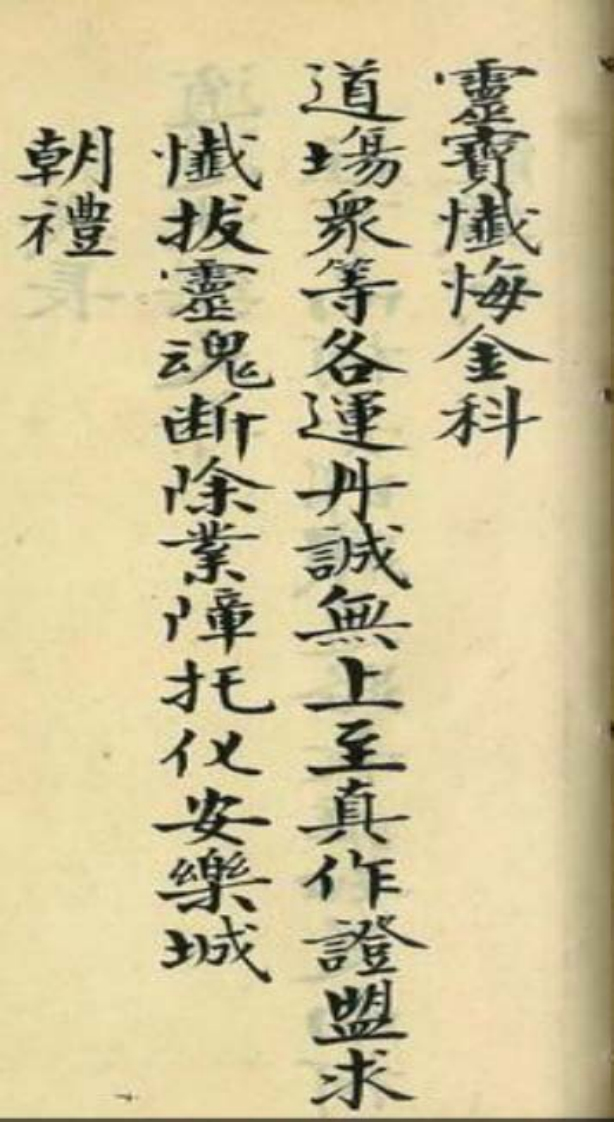 靈寶懺悔金科
道塲衆等各運丹誠無上至真作證盟求
懺拔靈魂断除業障托化安樂城
朝禮